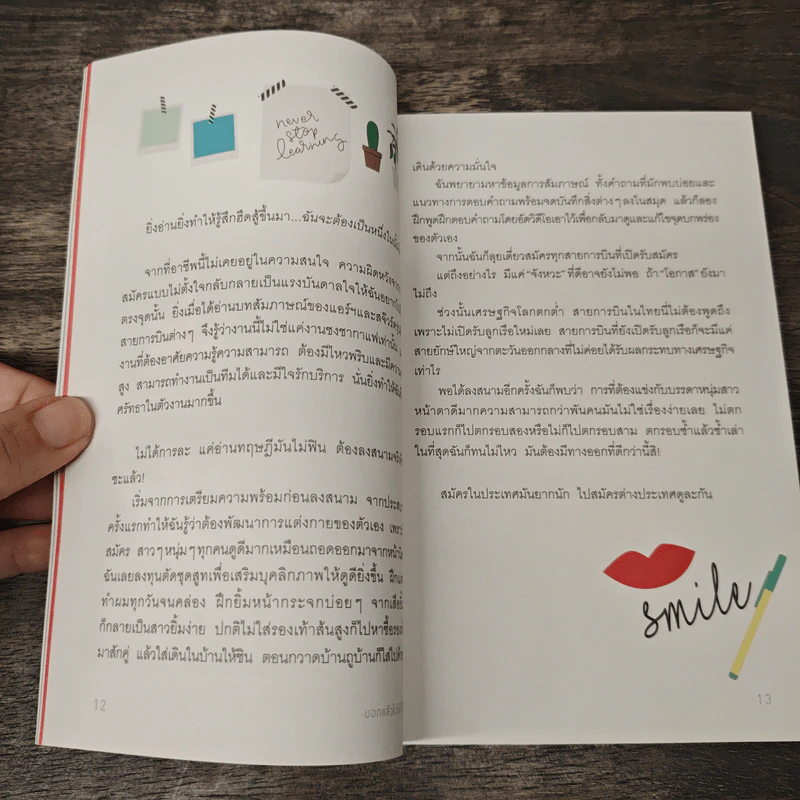 never
stop
learning
ยิ่งอ่านยิ่งทำให้รู้สึกฮึดสู้ขึ้นมา...ฉันจะต้องเป็นหนึ่งใน
จากที่อาชีพนี้ไม่เคยอยู่ในความสนใจ ความผิดหวัง
สมัครแบบไม่ตั้งใจกลับกลายเป็นแรงบันดาลใจให้ฉัน
ตรงจุดนั้น ยิ่งเมื่อได้อ่านบทสัมภาษณ์ของแอร์ฯและสจ๊วร์ต
สายการบินต่างๆ จึงรู้ว่างานนี้ไม่ใช่แค่งานชงชากาแฟเท่านั้น
งานที่ต้องอาศัยความรู้ความสามารถ ต้องมีไหวพริบและมี
สูง สามารถทำงานเป็นทีมได้และมีใจรักบริการ นั่นยิ่งทำให้
ศรัทธาในตัวงานมากขึ้น
ไม่ได้การละ แค่อ่านทฤษฎีมันไม่ฟิน ต้องลงสนาม
ซะแล้ว!
เริ่มจากการเตรียมความพร้อมก่อนลงสนาม จาก
ครั้งแรกทำให้ฉันรู้ว่าต้องพัฒนาการแต่งกายของตัวเอง
สมัคร สาวๆหนุ่มๆทุกคนดูดีมากเหมือนถอดออกมาจาก
ฉันเลยลงทุนตัดชุดสูทเพื่อเสริมบุคลิกภาพให้ดูดียิ่งขึ้น
ทำผมทุกวันจนคล่อง ฝึกยิ้มหน้ากระจกบ่อยๆ จาก
ก็กลายเป็นสาวยิ้มง่าย ปกติไม่ใส่รองเท้าส้นสูงก็ไปหาซื้อ
มาสักคู่ แล้วใส่เดินในบ้านให้ชิน ตอนกวาดบ้านถูบ้านก็ใส่
12
เดินด้วยความมั่นใจ
ฉันพยายามหาข้อมูลการสัมภาษณ์ ทั้งคำถามที่มักพบบ่อยและ
แนวทางการตอบคำถามพร้อมจดบันทึกสิ่งต่างๆลงในสมุด แล้วก็ลอง
ฝึกพูดฝึกตอบคำถามโดยอัดวิดีโอเอาไว้เพื่อกลับมาดูและแก้ไขจุดบกพร่อง
ของตัวเอง
จากนั้นฉันก็ลุยเดี่ยวสมัครทุกสายการบินที่เปิดรับสมัคร
แต่ถึงอย่างไร มีแค่ “จังหวะ” ที่ดีอาจยังไม่พอ ถ้า “โอกาส” ยังมา
ไม่ถึง
ช่วงนั้นเศรษฐกิจโลกตกต่ำ สายการบินในไทยนี่ไม่ต้องพูดถึง
เพราะไม่เปิดรับลูกเรือใหม่เลย สายการบินที่ยังเปิดรับลูกเรือก็จะมีแค่
สายยักษ์ใหญ่จากตะวันออกกลางที่ไม่ค่อยได้รับผลกระทบทางเศรษฐกิจ
เท่าไร
พอได้ลงสนามอีกครั้งฉันก็พบว่า การที่ต้องแข่งกับบรรดาหนุ่มสาว
หน้าตาดีมากความสามารถกว่าพันคนมันไม่ใช่เรื่องง่ายเลย ไม่ตก
รอบแรกก็ไปตกรอบสองหรือไม่ก็ไปตกรอบสาม ตกรอบซ้ำแล้วซ้ำเล่า
ในที่สุดฉันก็ทนไม่ไหว มันต้องมีทางออกที่ดีกว่านี้สิ!
สมัครในประเทศมันยากนัก ไปสมัครต่างประเทศดูละกัน
smile
13